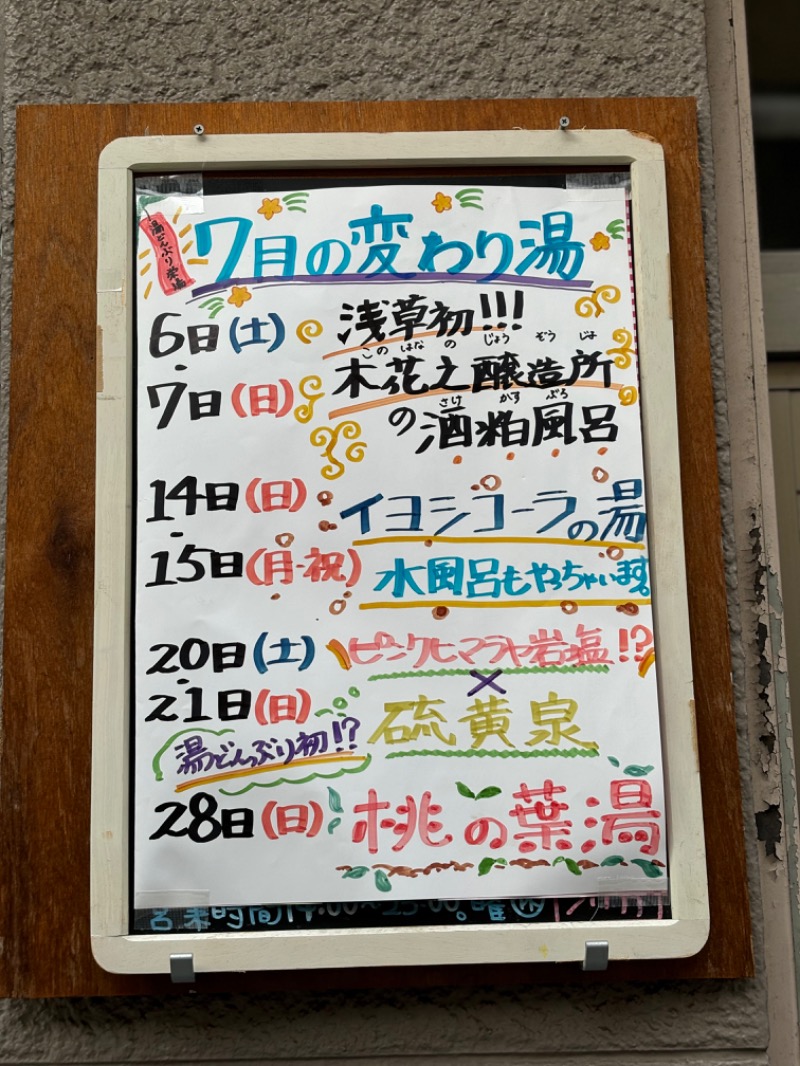 湯どんぶり栄湯
7月の変わり湯
6日(土)
浅草初!!!
・
このはなのじょうぞうじょ
7日(日)
木花之醸造所
さけかすぶろ
の酒粕風呂
14日(日)
イヨシコーラの湯
・
15日(月・祝)
水風呂もやっちゃいます。
20日(土)
ピンクヒマラヤ岩塩!?
・
×
21日(日)
硫黄泉
湯どんぶり初!?
28日(日)
桃の葉湯
営業時間14:00~23:00。